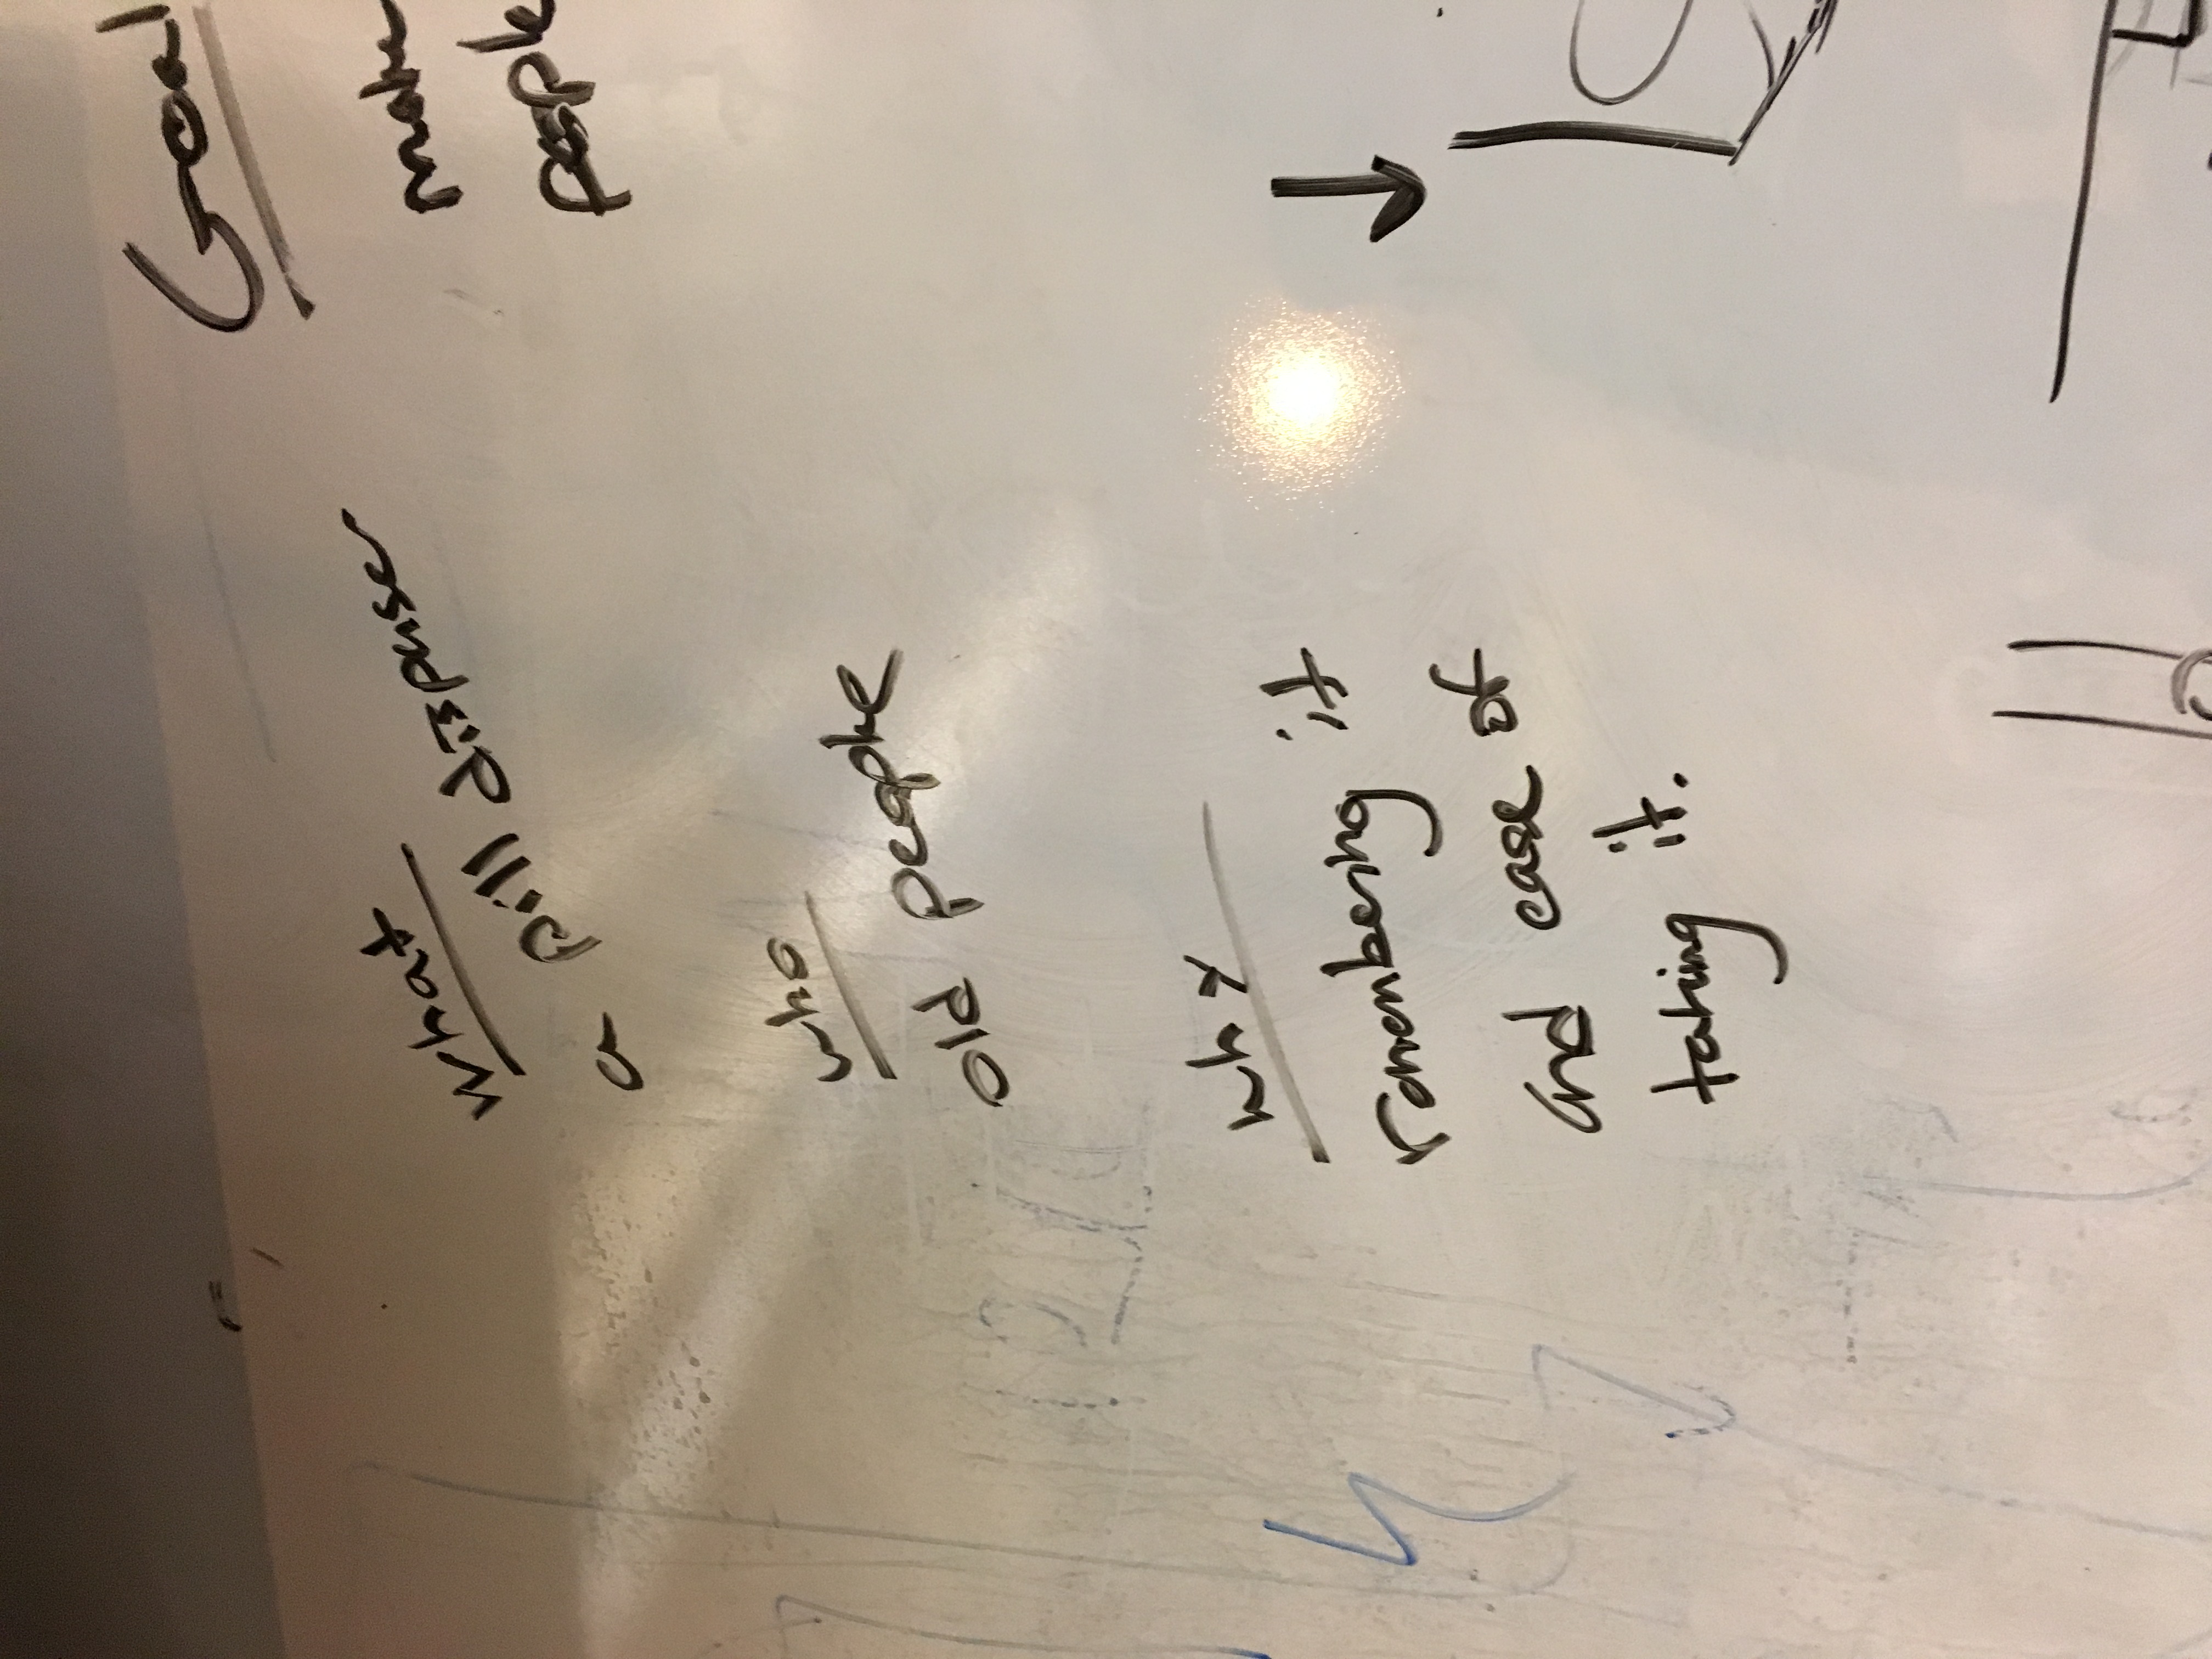 What
a pill dispenser
who
old people
why
remembering it
and ease of
taking it.
Goal
make